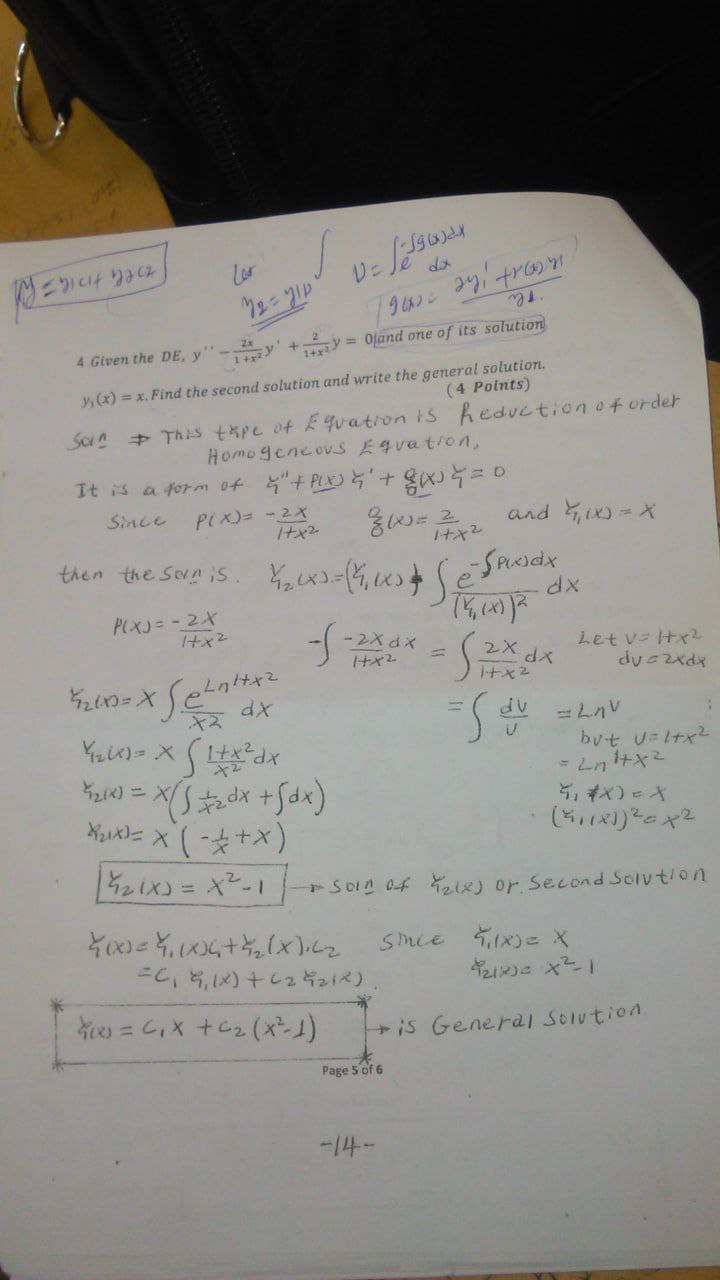 y = y1c1 + y2c2
Let
y2 = y1u
U = ∫e^-∫g(x)dx dx
g(x) = 2y1' + P(x)y1 / y1.
4 Given the DE, y'' - 2x/1+x² y' + 2/1+x² y = 0 and one of its solution
y₁(x) = x. Find the second solution and write the general solution.
(4 Points)
Soln ⇒ This type of Equation is Reduction of order
Homogeneous Equation.
It is a form of y'' + P(x) y' + q(x) y = 0
Since P(x) = -2x/1+x² q(x) = 2/1+x² and y₁(x) = x
then the soln is. y₂(x) = (y₁(x)) ∫ e^-∫P(x)dx / (y₁(x))² dx
P(x) = -2x/1+x² -∫ -2x dx/1+x² = ∫ 2x/1+x² dx Let U = 1+x²
du = 2xdx
y₂(x) = x ∫ e^Ln 1+x² / x² dx = ∫ du/u = Ln U
but U = 1+x²
y₂(x) = x ∫ 1+x²/x² dx = Ln 1+x²
y₂(x) = x(∫ 1/x² dx + ∫dx) y₁(x) = x
y₂(x) = x (-1/x + x) (y₁(x))² = x²
y₂(x) = x² - 1 → soln of y₂(x) or. Second Solution
y(x) = y₁(x)c₁ + y₂(x).c₂ Since y₁(x) = x
= c₁ y₁(x) + c₂ y₂(x) y₂(x) = x² - 1
y(x) = c₁x + c₂(x² - 1) → is General Solution
Page 5 of 6
-14-